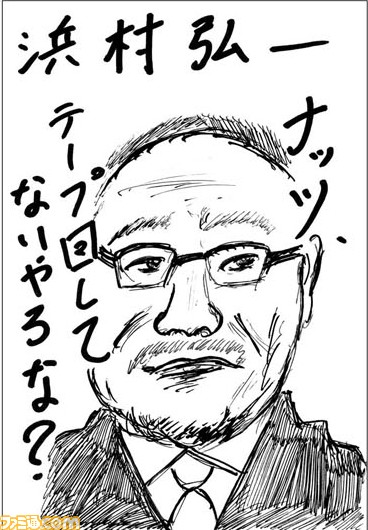 浜村弘一
ナッツ、
テープ回して
ないやろな?
ファミ通.com